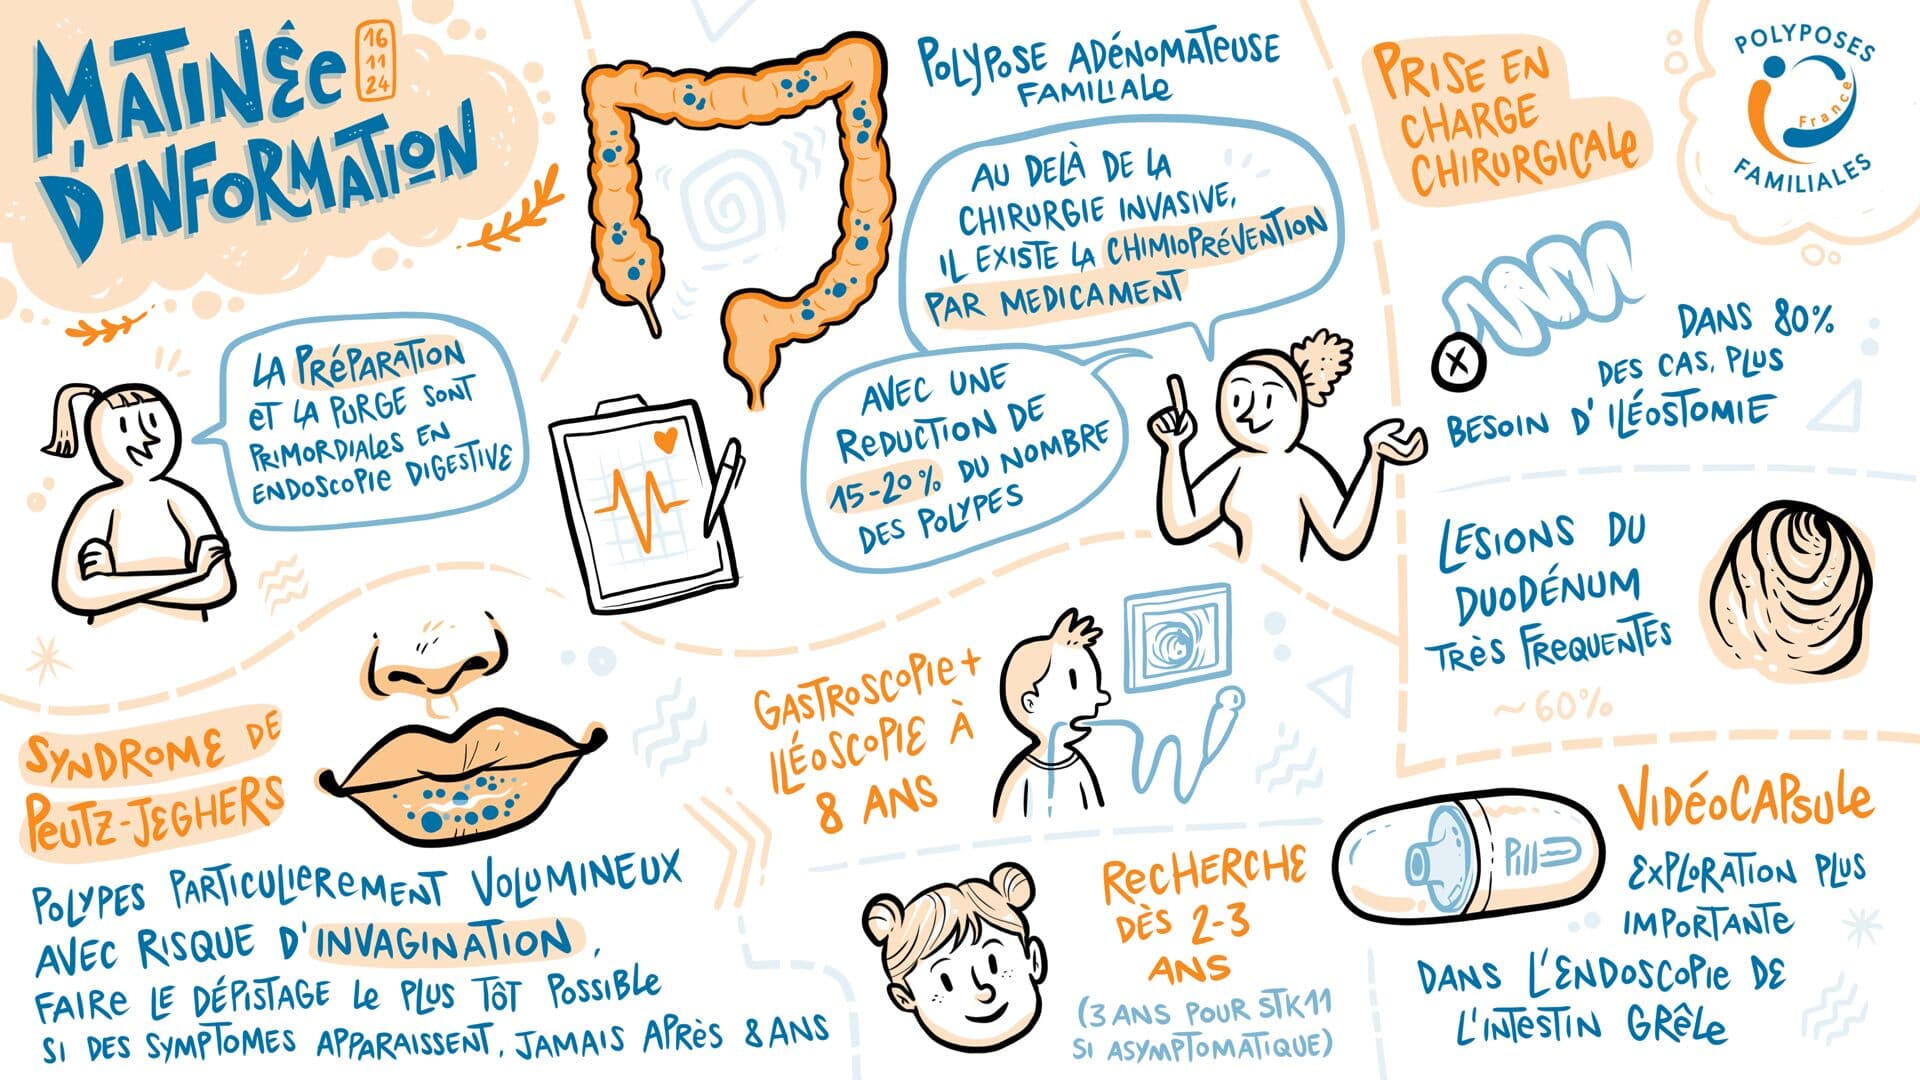 MATINÊE
D'INFORMATION
16
11
24
LA PRÉPARATION
ET LA PURGE SONT
PRIMORDIALES EN
ENDOSCOPIE DIGESTIVE
POLYPOSE ADÉNOMATEUSE
FAMILIALE
AU DELÀ DE LA
CHIRURGIE INVASIVE,
IL EXISTE LA CHIMIOPRÉVENTION
PAR MEDICAMENT
AVEC UNE
REDUCTION DE
15-20% DU NOMBRE
DES POLYPES
PRISE EN
CHARGE
CHIRURGICALE
POLYPOSES
France
FAMILIALES
DANS 80%
DES CAS, PLUS
BESOIN D'ILÉOSTOMIE
LESIONS DU
DUODÉNUM
TRÈS FREQUENTES
~60%
SYNDROME DE
PEUTZ-JEGHERS
POLYPES PARTICULIEREMENT VOLUMINEUX
AVEC RISQUE D'INVAGINATION,
FAIRE LE DÉPISTAGE LE PLUS TÔT POSSIBLE
SI DES SYMPTOMES APPARAISSENT, JAMAIS APRÈS 8 ANS
GASTROSCOPIE+
ILÉOSCOPIE À
8 ANS
RECHERCHE
DÈS 2-3
ANS
(3 ANS POUR STK11
SI ASYMPTOMATIQUE)
VIDÉOCAPSULE
Pill
EXPLORATION PLUS
IMPORTANTE
DANS L'ENDOSCOPIE DE
L'INTESTIN GRÊLE